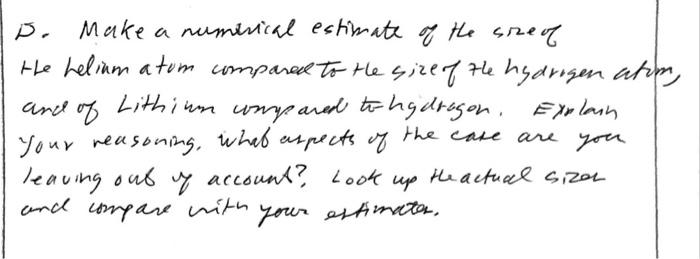 D. Make a numerical estimate of the size of
the helium atom compared to the size of the hydrogen atom,
and of Lithium compared to hydrogen. Explain
your reasoning, what aspects of the case are you
leaving out of account? Look up the actual sizes
and compare with your estimates.